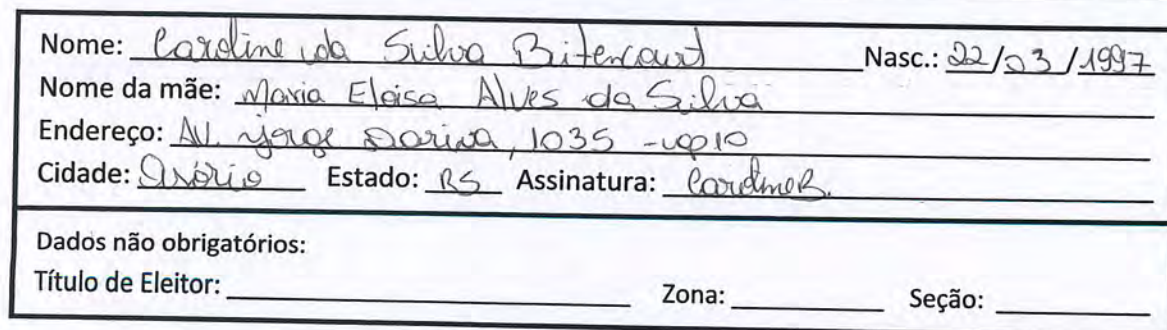 Nome: Caroline da Silva Bitencourt Nasc.: 22/03/1997
Nome da mãe: Maria Eloisa Alves da Silva
Endereço: AV. Jorge Dariva, 1035 - ap 10
Cidade: Osório Estado: RS Assinatura: CarolineB.
Dados não obrigatórios:
Título de Eleitor: Zona: Seção: